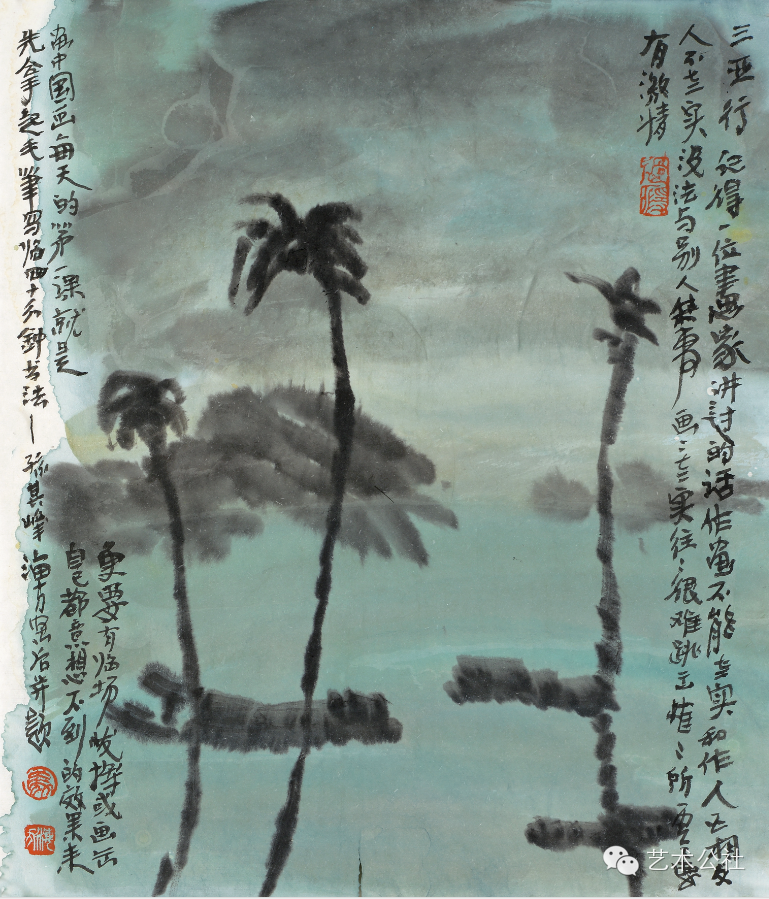 三亚行 记得一位畫家讲过的话作画不能老实和作人正相反
人不老实没法与别人共事 画画老实往往很难跳出
有激情
更要有临场发挥或画出
自己都意想不到的效果来
画中国画每天的第一课就是
先拿起毛筆写临四十分鐘书法—孙其峰 并题
艺术公社